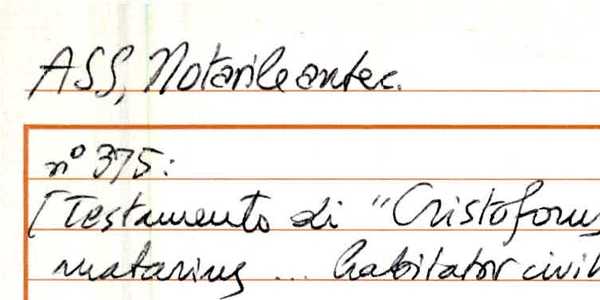 ASS, Notarile antec.
n° 375:
[Testamento di "Cristoforus
matarius ... habitator civit